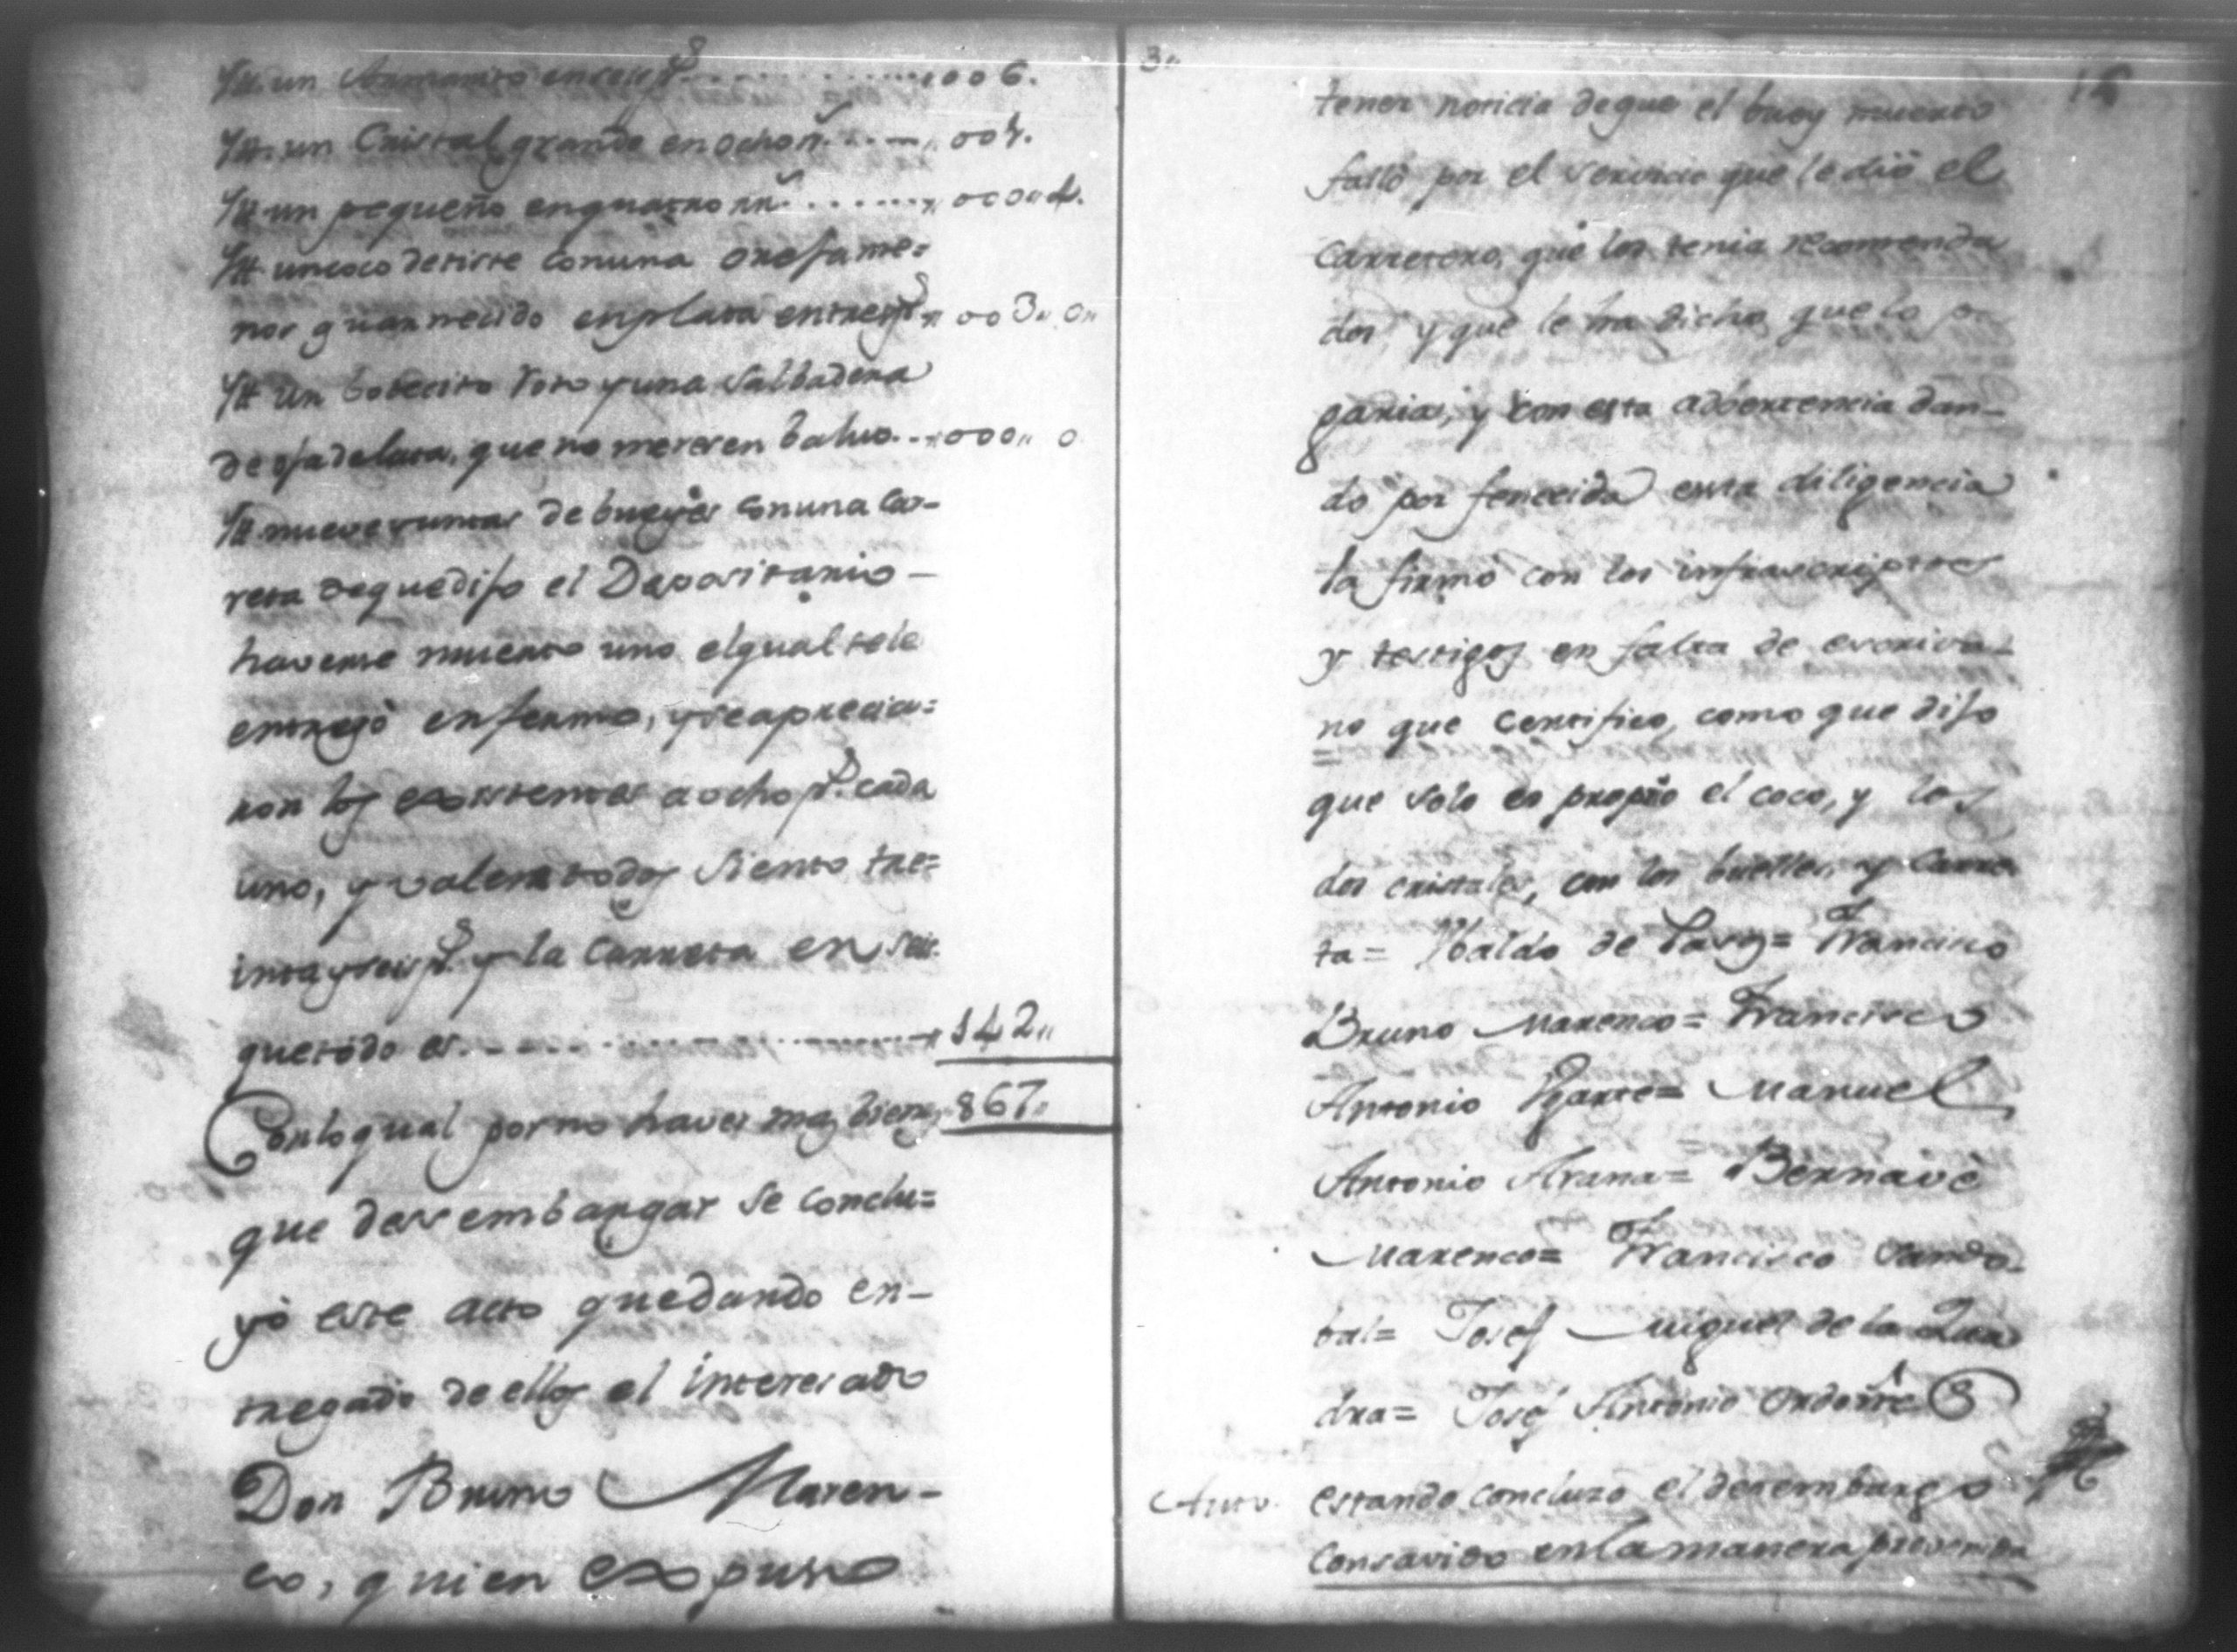 Ytt. un Armarito en seis ps ,, 006.
Ytt. un Cristal grande en ocho rr.s ,, 001.
Ytt un pequeño en quatro rr.s ,, 000,, 4.
Ytt un coco de tirte con una oreja me=
nos guarnecido en plata en tres ps ,, 003,, 0,,
Ytt un botecito roto y una Salbadera
de oja de lata, que no merecen balor ,, 000,, 0
Ytt nueve yuntas de bueyes con una Car-
reta de que dijo el Depositario -
haverse muerto uno el qual se le
entregó enfermo, y se aprecia=
ron los existentes a ocho ps. cada
uno, y valen todos siento tre=
inta y seis ps. y la Carreta en seis
que todo es ,, 142,,
Con lo qual por no haver mas bienes ,, 867,,
que desembargar se conclu=
yó este acto quedando en-
tregado de ellos el interesado
Don Bruno Maren-
co, quien expuso
3,,
tener noticia de que el buey muerto
falló por el servicio que le dió el
Carretero, que los tenia recomenda
dos y que le ha dicho que lo pa
garia, y con esta adbertencia dan-
do por fenecida esta diligencia
la firmó con los infrascriptos
y testigos en falta de escriva-
no que certifico, como que dijo
que solo es propio el coco, y los
dos cristales, con los buelles, y Carre
ta = Ubaldo de Pasos = Francisco
Bruno Marenco = Francisco
Antonio Ugarte = Manuel
Antonio Arana = Bernavé
Marenco = Francisco Sando-
bal = Josef Miguel de la Qua
dra = Josef Antonio Ordoñes
Auto. estando concluso el desembargo
Consavido en la manera prevenida